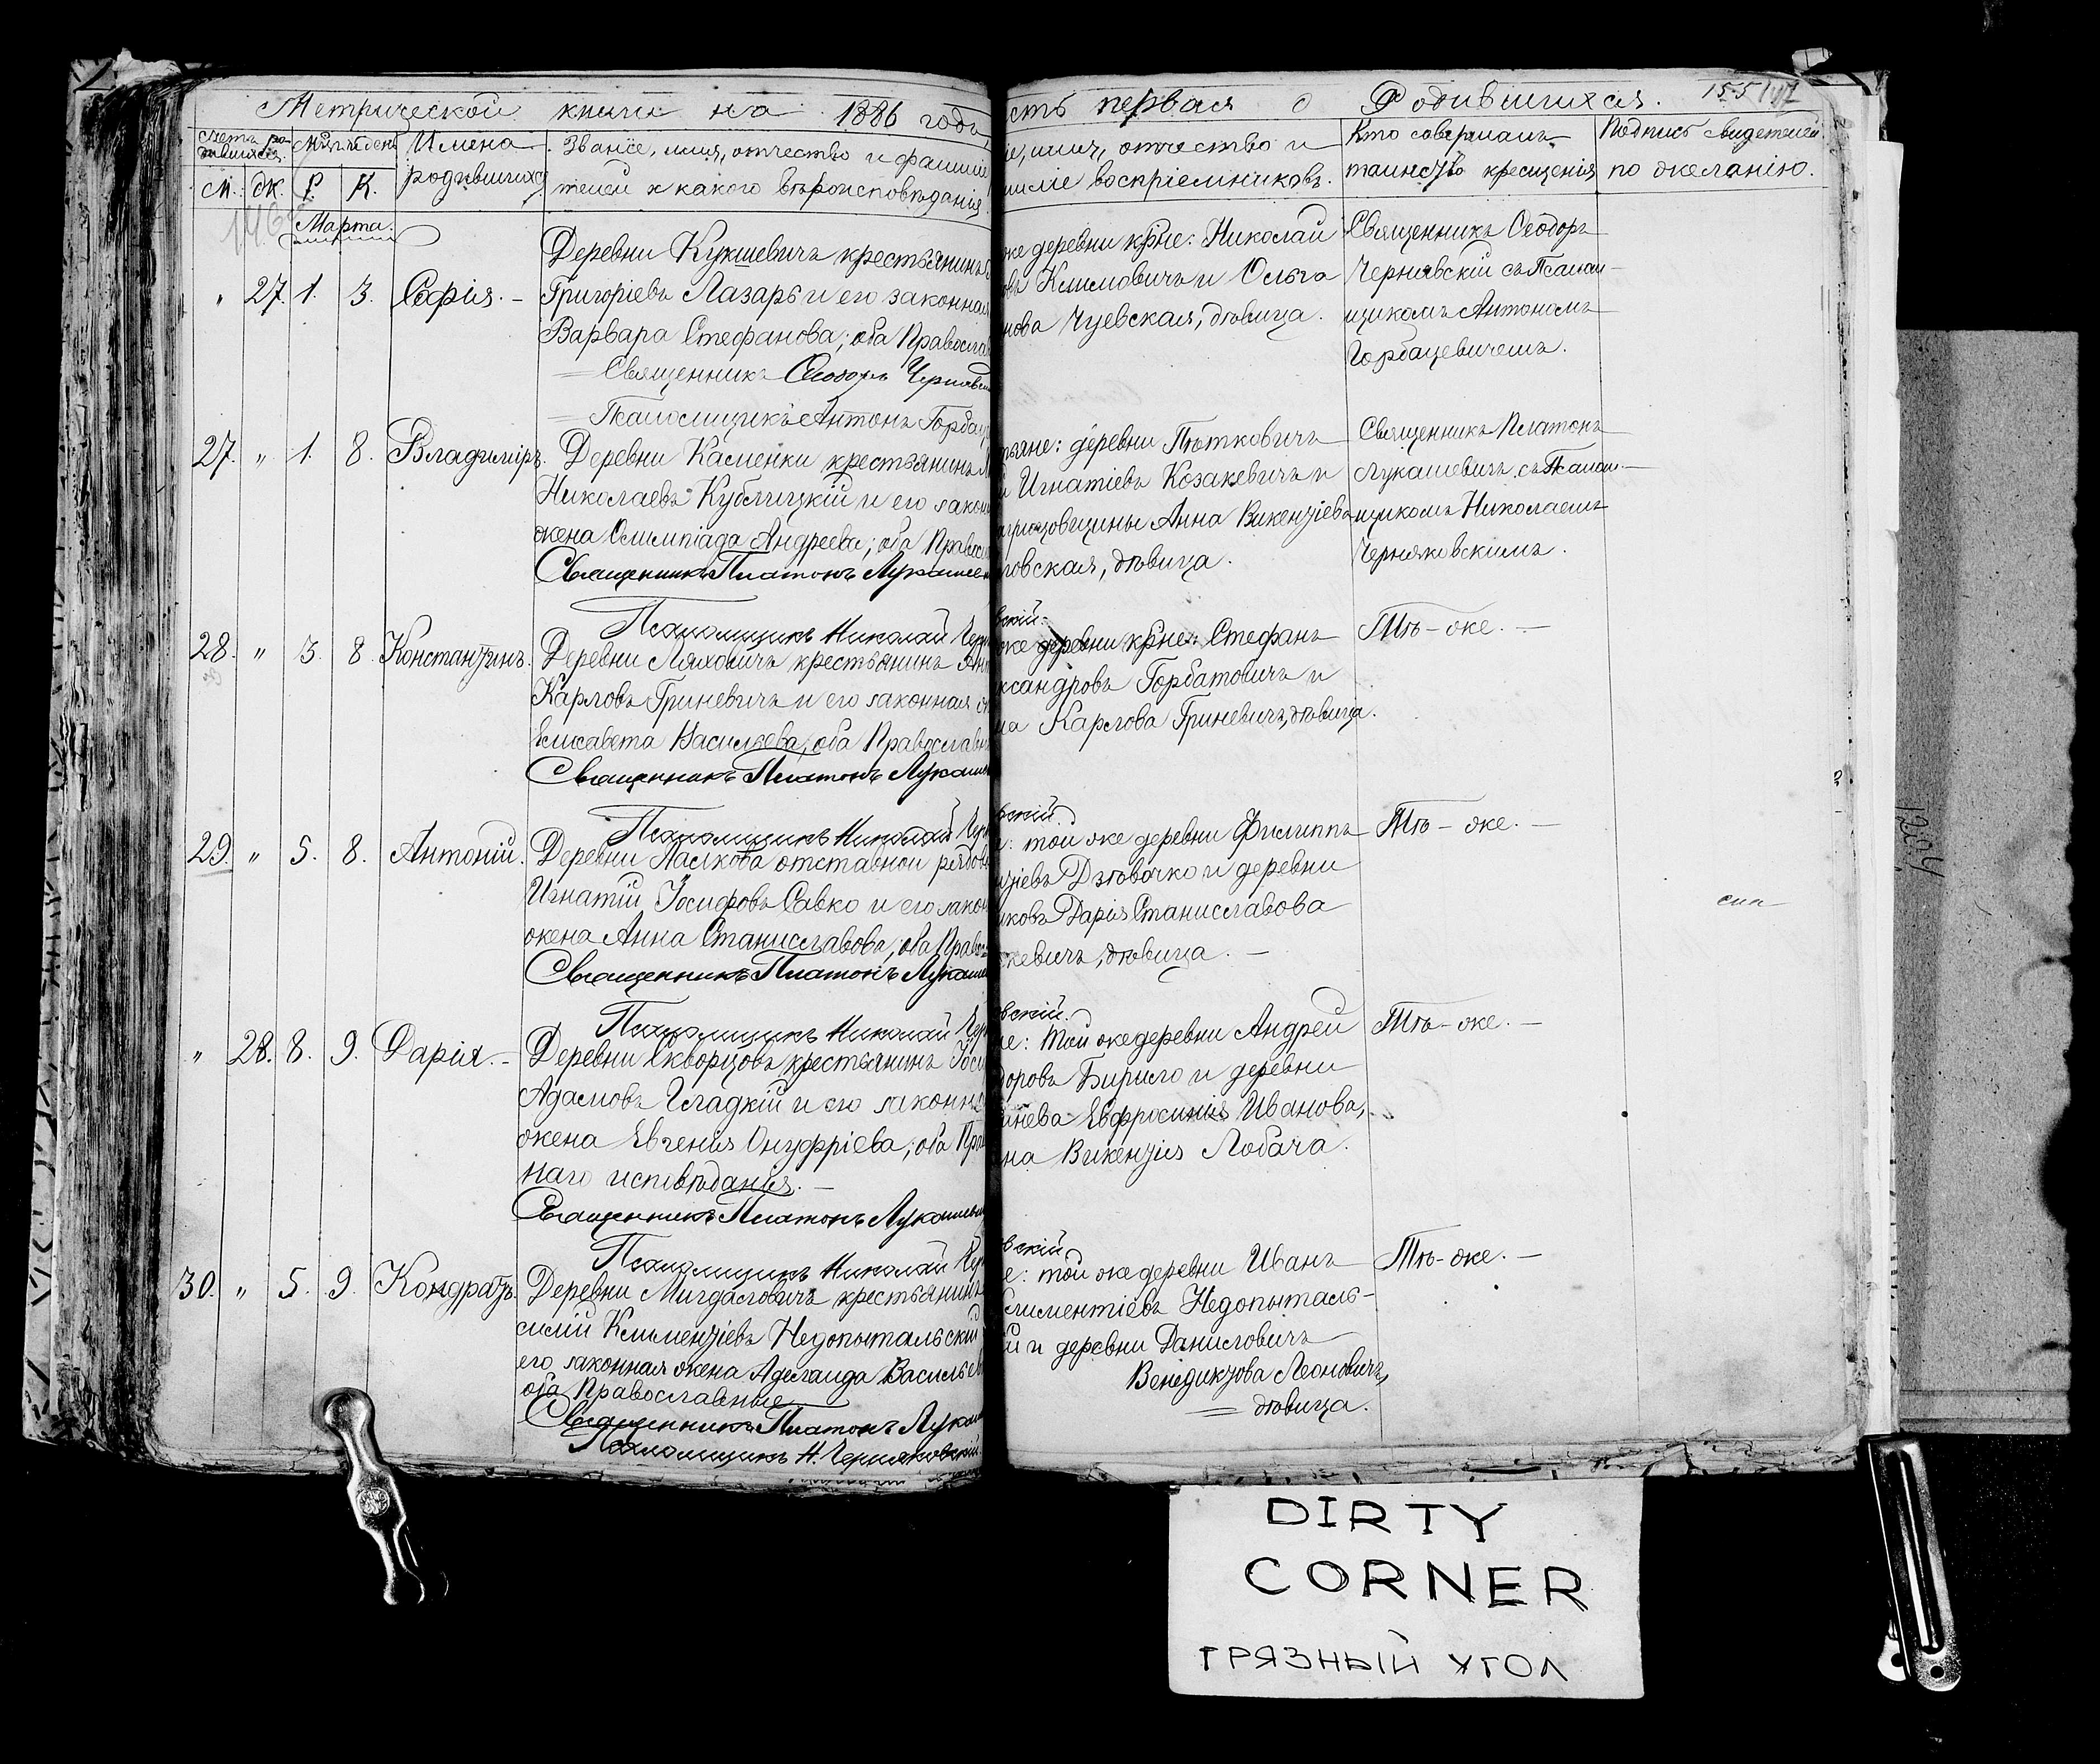 Метрической книги на 1886 годъ,
сть первая о Родившихся. 155
счетъ ро-
дившихся.
М. Ж.
Мѣсяцъ и день
Р. К.
Имена
родившихся
Званіе, имя, отчество и фамилі
телей и какого вѣроисповѣданія
іе, имя, отчество и
миліе воспріемниковъ.
Кто совершалъ
таинство крещенія
Подпись свидетелей
по желанію.
Марта.
" 27. 1. 3. Софія. –
Деревни Кукшевичъ крестьянинъ
Григоріевъ Лазарь и его законная
Варвара Стефанова; оба Правосла
Священникъ Ѳеодоръ Чернявск
Псаломщикъ Антонъ Горбац
же деревни кр–не: Николай
овъ Климовичъ и Ольга
нова Чуевская, дѣвица.
Священникъ Ѳеодоръ
Чернявскій съ Псалом-
щикомъ Антономъ
Горбацевичемъ.
27. " 1. 8. Владиміръ.
Деревни Каменки крестьянинъ
Николаевъ Кублицкій и его закон
жена Олимпіада Андреева; оба Правос
Священникъ Платонъ Лукашев
Псаломщикъ Николай Черн
тьяне: деревни Пѣтковичъ
й Игнатіевъ Козакевичъ и
Анна Викентіева
ровская, дѣвица.
Священникъ Платонъ
Лукашевичъ съ Псалом-
щикомъ Николаемъ
Черняковскимъ.
вскій.
28. " 3. 8. Константинъ.
Деревни Ляховичъ крестьянинъ Ант
Карловъ Гриневичъ и его законная ж
Елисавета Васильева; оба Православн
Священникъ Платонъ Лукаш
Псаломщикъ Николай Черн
же деревни кр–не: Стефанъ
ксандровъ Горбатовичъ и
на Карлова Гриневичъ, дѣвица.
Тѣ-же. –
вскій.
29. " 5. 8. Антоній.
Деревни Паскова отставной рядов
Игнатій Іосифовъ Савко и его закон
жена Анна Станиславова; оба Право
Священникъ Платонъ Лукаш
Псаломщикъ Николай Черн
е: той же деревни Филиппъ
Дѣвочко и деревни
ковъ Дарія Станиславова
кевичъ, дѣвица. –
Тѣ-же. –
вскій.
" 28. 8. 9. Дарія. –
Деревни Скворцовъ крестьянинъ Іоси
Адамовъ Гладкій и его законна
жена Евгенія Онуфріева; оба Пра
наго исповѣданія. –
Священникъ Платонъ Лукашеви
Псаломщикъ Николай Чер
не: той же деревни Андрей
доровъ Бирило и деревни
нева Евфросинія Иванова,
на Викентія Лобача.
Тѣ-же. –
вскій
30. " 5. 9. Кондратъ.
Деревни Мигдаловичъ крестьянинъ
силій Климентіевъ Недопытальскій
его законная жена Аделаида Василье
оба Православные
Священникъ Платонъ Лукаш
Псаломщикъ Н. Черняковскій.
е: той же деревни Иванъ
лиментіевъ Недопыталь-
й и деревни Даниловичъ
Венедиктова Леоновичъ,
дѣвица.
Тѣ-же. –
1204
DIRTY
CORNER
ГРЯЗНЫЙ УГОЛ